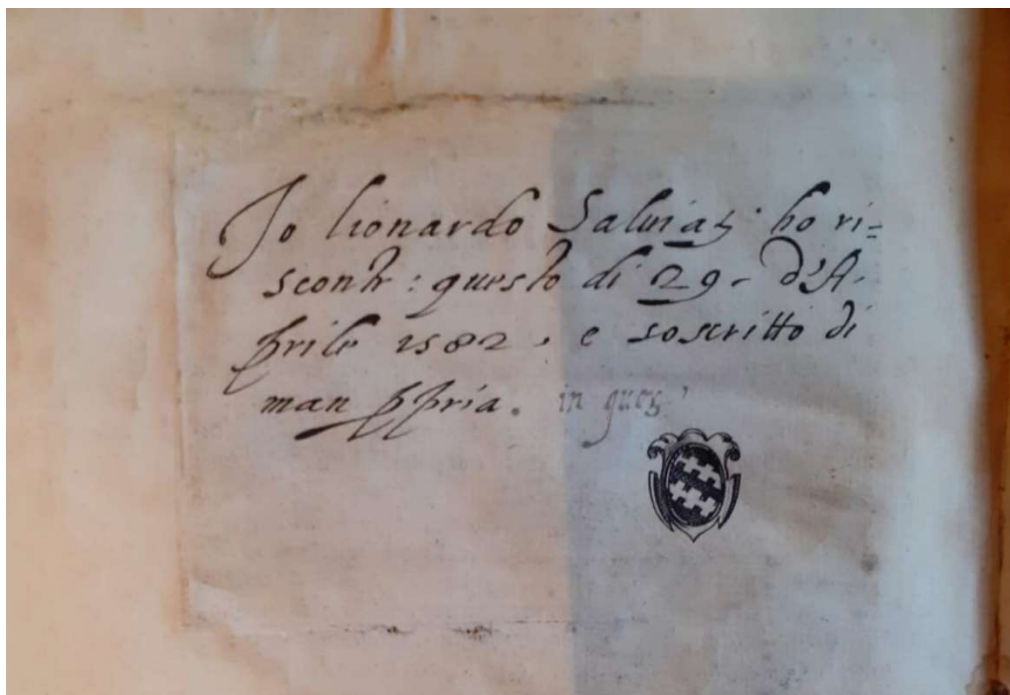 Io lionardo Saluiatj ho ri=
scontr: questo di 29. d'A-
prile 1582, e soscritto di
man ppria. in